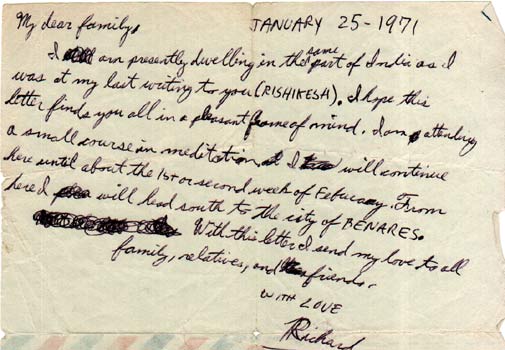 My dear family, JANUARY 25-1971
I am presently dwelling in the same part of India as I
was at my last writing to you (RISHIKESH). I hope this
letter finds you all in a pleasant frame of mind. I am attending
a small course in meditation, I will continue
here until about the 1st or second week of Febuary From
here I will head south to the city of BENARES.
With this letter I send my love to all
family, relatives, and friends.
WITH LOVE
Richard